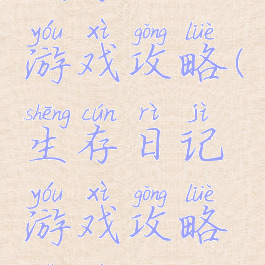 yóu xì gōng lüè
游戏攻略(
shēng cún rì jì
生存日记
yóu xì gōng lüè
游戏攻略